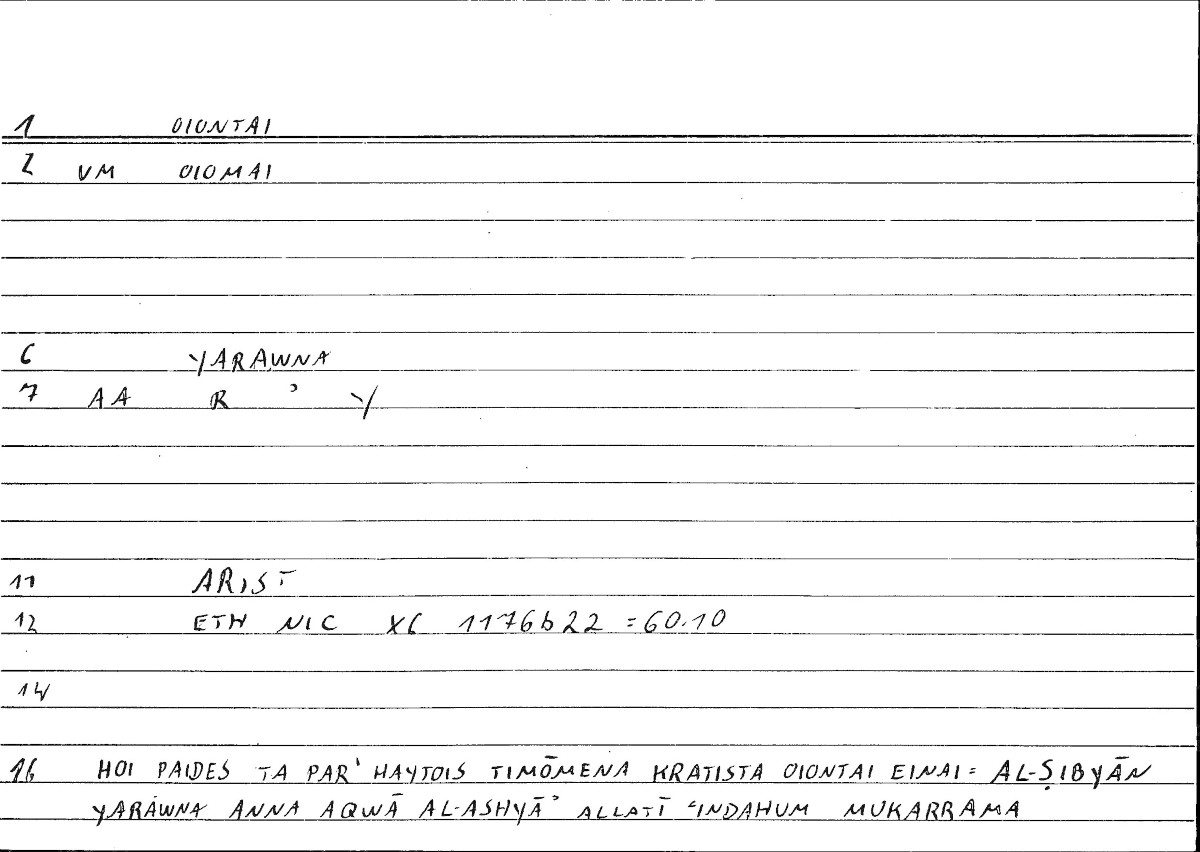 1 OIONTAI
2 VM OIOMAI
6 YARAWNA
7 AA R ʾ Y
11 ARIST
12 ETH NIC X6 1176b22 = 60.10
14
16 HOI PAIDES TA PAR' HAYTOIS TIMŌMENA KRATISTA OIONTAI EINAI = AL-ṢIBYĀN
YARAWNA ANNA AQWĀ AL-ASHYĀʾ ALLATĪ ʿINDAHUM MUKARRAMA